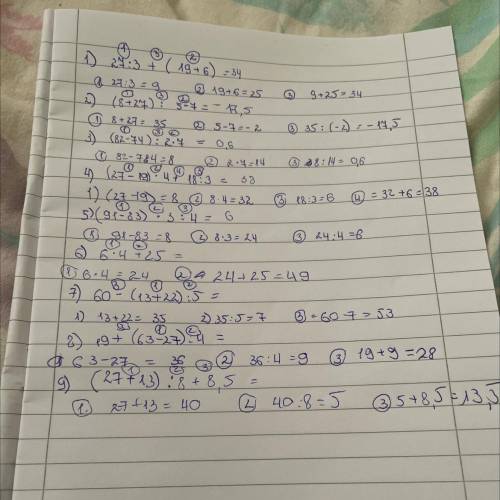 ① ③ ②
1) 27:3 + (19+6) = 34
① 27:3 = 9 ② 19+6=25 ③ 9+25=34
① ③ ②
2) (8+27) : 5-7 = -17,5
① 8+27= 35 ② 5-7=-2 ③ 35:(-2) = -17,5
① ③ ②
3) (82-74) : 2·7 = 0,6
① 82-784=8 ② 2·7=14 ③ 8:14= 0,6
① ② ④ ③
4) (27-19)·4+18:3 = 38
1) (27-19) = 8 ② 8·4=32 ③ 18:3=6 ④ = 32+6=38
① ② ③
5) (91-83)·3:4 = 6
① 91-83=8 ② 8·3=24 ③ 24:4=6
① ②
6) 6·4+25 =
① 6·4=24 ② 24+25=49
③ ① ②
7) 60-(13+22):5 =
1) 13+22= 35 2) 35:5=7 ③ = 60-7=53
③ ① ②
8) 19+(63-27):4 =
① 63-27 = 36 ② 36:4=9 ③ 19+9=28
① ② ③
9) (27+13) : 8 + 8,5 =
①. 27+13=40 ② 40:8=5 ③ 5+8,5=13,5